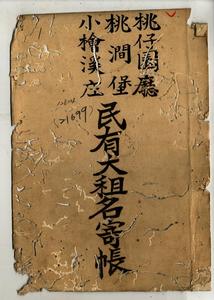 桃仔園廳
桃澗堡
小檜溪庄
民有大租名寄帳
(21699)